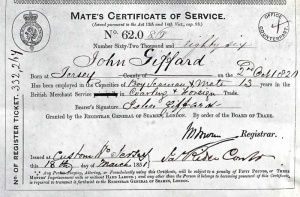 MATE'S CERTIFICATE OF SERVICE.
(Issued pursuant to the Act 13th and 14th Vict., cap. 93.)
No. 62.086
Number Sixty Two Thousand and Eighty six
John Giffard
Born at Jersey County of on the
Has been employed in the Capacities of Boy, Seaman & Mate 13 years in the
British Merchant Service in Coasting & Foreign Trade.
Bearer's Signature John Giffard
Granted by the Registrar General of Seamen, London. By order of the Board of Trade.
Registrar.
Issued at Custom Ho. Jersey
this 18th day of March 1851
Any Person Forging, Altering, or Fraudulently using this Certificate, will be subject to a penalty of FIFTY POUNDS, or THREE
MONTHS' Imprisonment with or without HARD LABOUR; and any other than the Person it belongs to becoming possessed of this Certificate,
is required to transmit it forthwith to the REGISTRAR GENERAL OF SEAMEN, LONDON.
No. OF REGISTER TICKET
OFFICE COUNTERPART